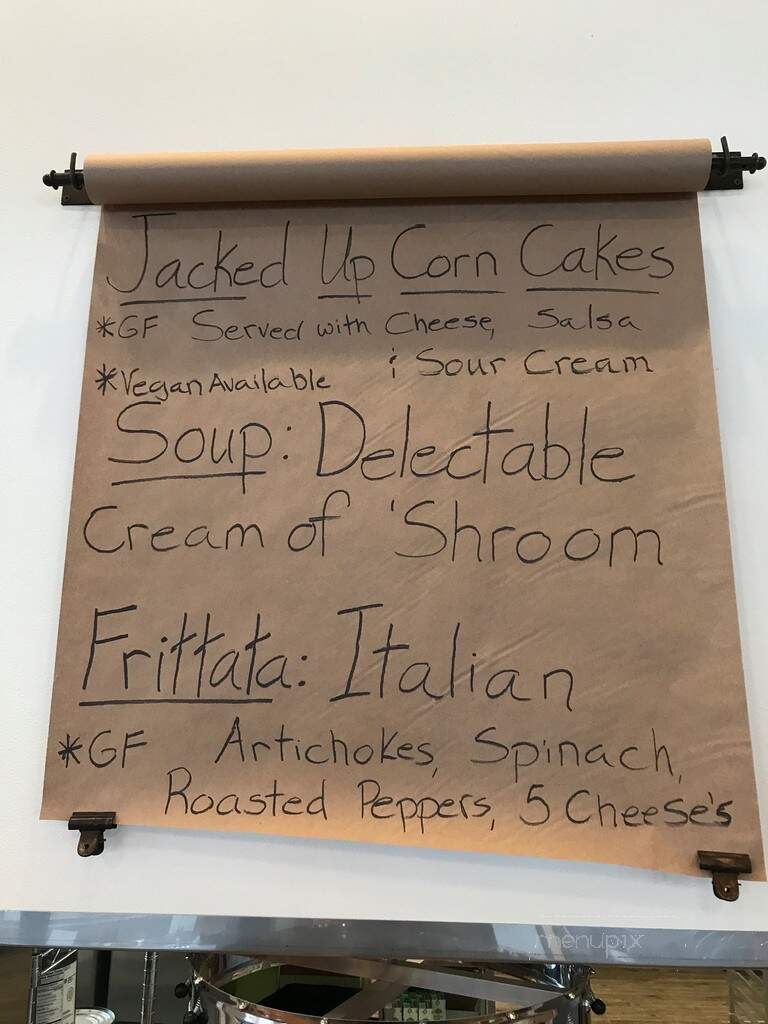 Jacked Up Corn Cakes
*GF Served with Cheese, Salsa
*Vegan Available & Sour Cream
Soup: Delectable
Cream of 'Shroom
Frittata: Italian
*GF Artichokes, Spinach,
Roasted Peppers, 5 Cheese's
menupix